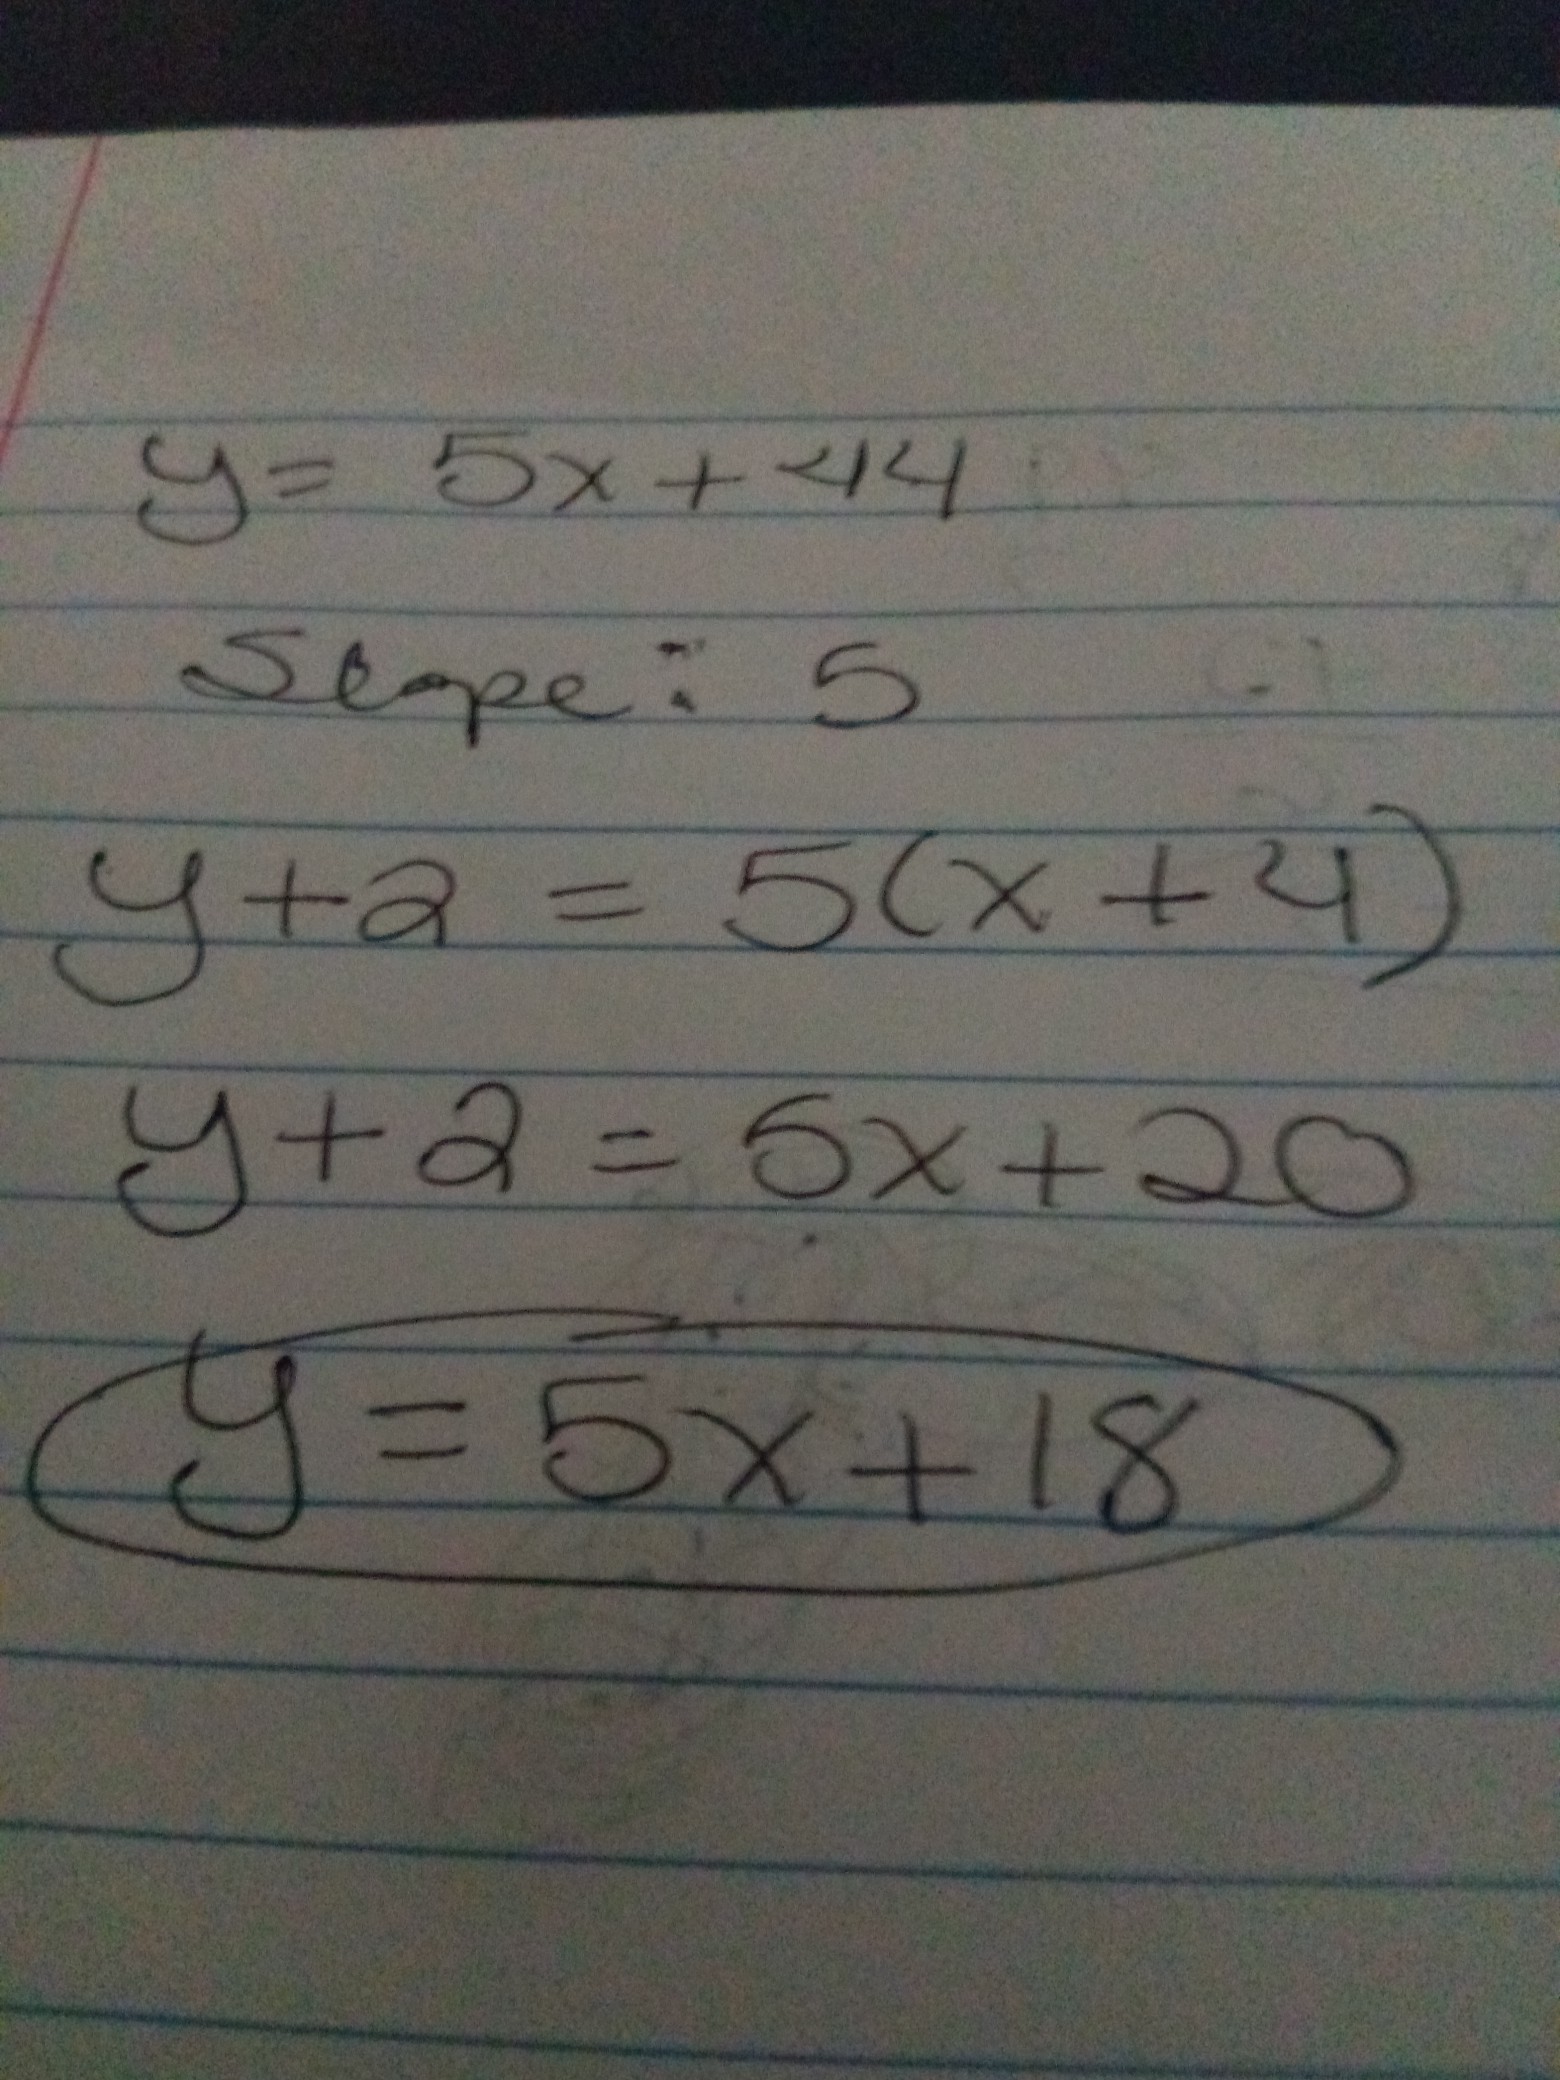 y = 5x + 44
Slope: 5
y + 2 = 5(x + 4)
y + 2 = 5x + 20
y = 5x + 18